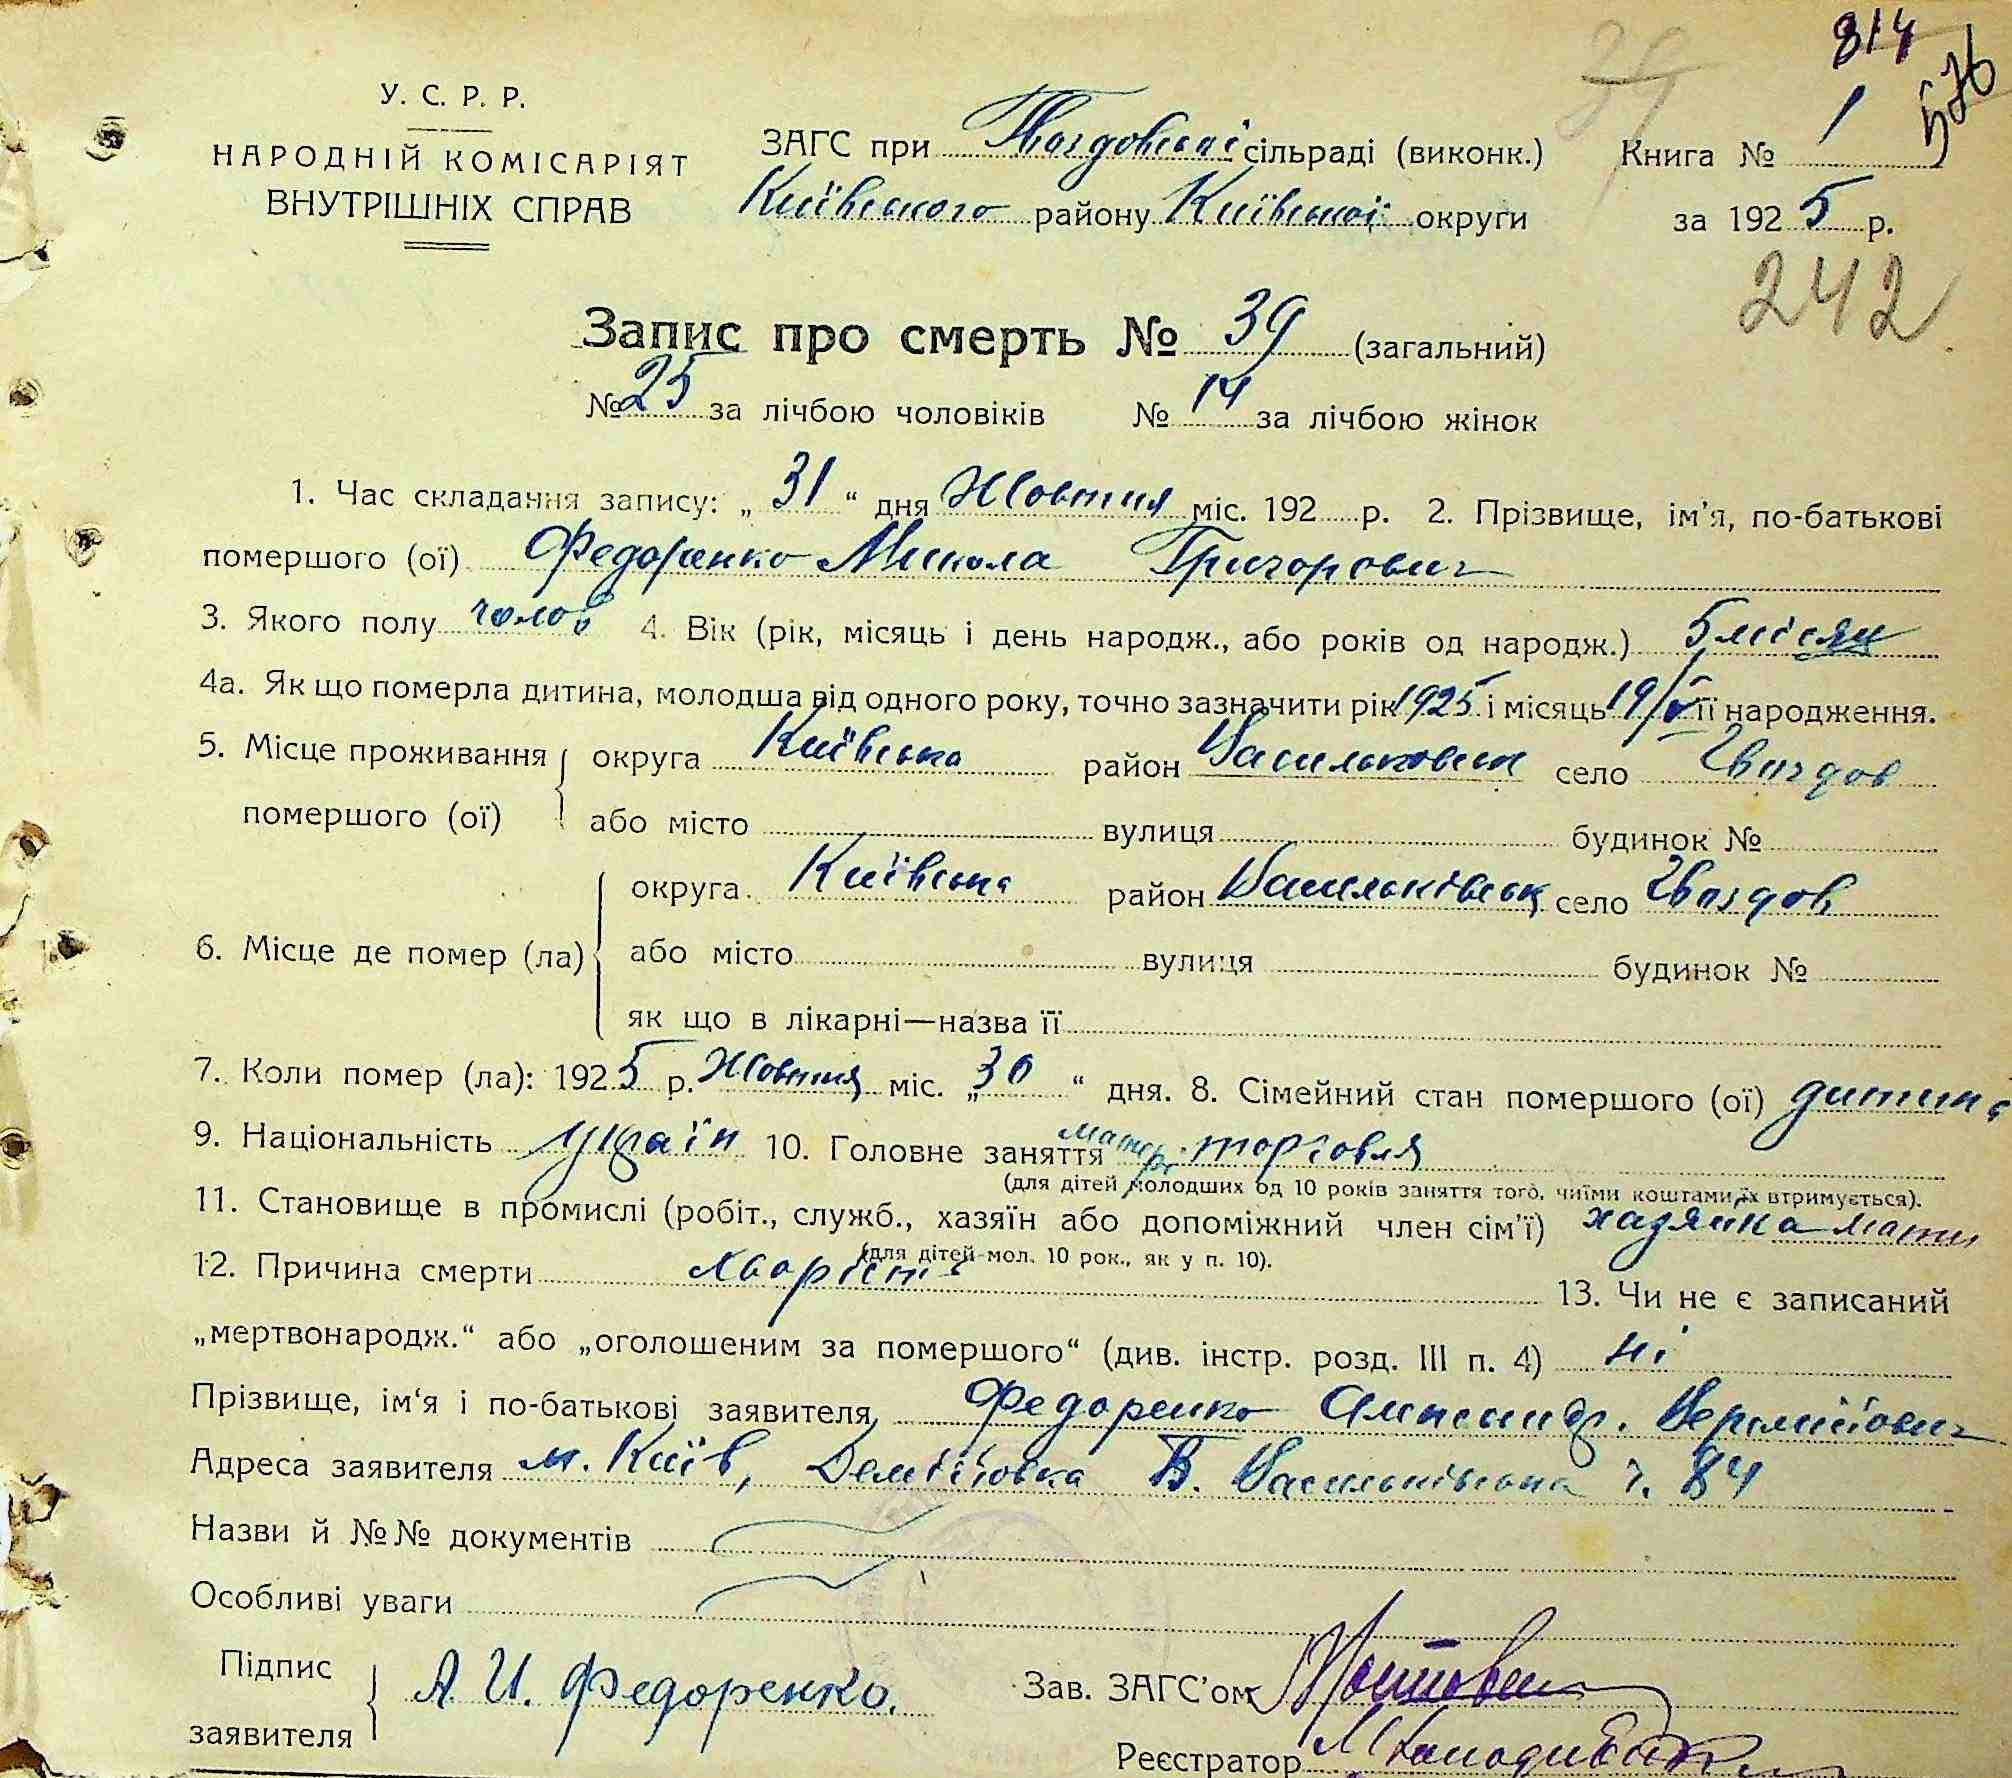 814
576
39
У. С. Р. Р.
НАРОДНІЙ КОМІСАРІЯТ
ВНУТРІШНІХ СПРАВ
ЗАГС при Гвоздовській сільраді (виконк.) Книга № 1
Київського району Київської округи за 1925 р.
242
Запис про смерть № 39 (загальний)
№ 25 за лічбою чоловіків № 14 за лічбою жінок
1. Час складання запису: „ 31 “ дня Жовтня міс. 192 р. 2. Прізвище, ім'я, по-батькові
помершого (ої) Федоренко Микола Григорович
3. Якого полу чолов 4. Вік (рік, місяць і день народж., або років од народж.) 5 місяц
4а. Як що померла дитина, молодша від одного року, точно зазначити рік 1925 і місяць 19/V її народження.
5. Місце проживання округа Київська район Васильковськ село Гвоздов
помершого (ої) або місто вулиця будинок №
округа Київська район Васильківськ село Гвоздов
6. Місце де помер (ла) або місто вулиця будинок №
як що в лікарні—назва її
7. Коли помер (ла): 1925 р. Жовтня міс. „ 30 “ дня. 8. Сімейний стан помершого (ої) дитина
9. Національність україн 10. Головне заняття матері торговля
(для дітей молодших од 10 років заняття того, чиїми коштами їх втримується).
11. Становище в промислі (робіт., служб., хазяїн або допоміжний член сім'ї) хазяйка мати
(для дітей мол. 10 рок., як у п. 10).
12. Причина смерти хворість 13. Чи не є записаний
„мертвонародж.“ або „оголошеним за помершого“ (див. інстр. розд. III п. 4) ні
Прізвище, ім'я і по-батькові заявителя Федоренко Александр.
Адреса заявителя м. Київ, Деміївка В. Васильківська ч. 84
Назви й №№ документів
Особливі уваги
Підпис
заявителя
А. И. Федоренко.
Зав. ЗАГС'ом
Реєстратор